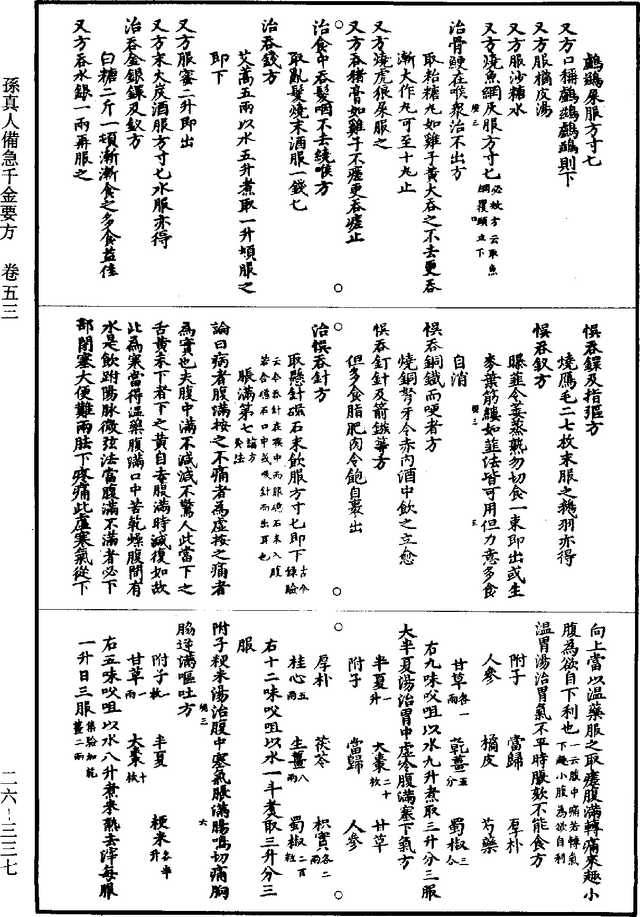 孫真人備急千金要方　卷五三
二六－三三七
鸕鷀屎服方寸七
又方口稱鸕鷀鸕鷀則下
又方服橘皮湯
又方服沙糖水
又方燒魚網灰服方寸七 必效方云取魚網覆頭立下
治骨鯁在喉衆治不出方
取粘糖丸如雞子黃大吞之不去更吞
漸大作丸可至十丸止
又方燒虎狼屎服之
又方吞猪膏如雞子不瘥更吞瘥止
治食中吞髮咽不去繞喉方
取亂髮燒末酒服一錢七
治吞錢方
艾蒿五兩以水五升煮取一升頓服之
即下
又方服蜜二升即出
又方末火炭酒服方寸七水服亦得
治吞金銀鐶及釵方
白糖二斤一頓漸漸食之多食益佳
又方吞水銀一兩再服之
悮吞鐶及指彄方
燒鴈毛二七枚末服之鵝羽亦得
悮吞釵方
曝韮令萎蒸熟勿切食一束即出或生
麥葉筋縷如韮法皆可用但力意多食
自消
悮吞銅鐵而哽者方
燒銅弩牙令赤內酒中飲之立愈
悮吞釘針及箭鏃等方
但多食脂肥肉令飽自裹出
治悮吞針方
取懸針磁石末飲服方寸七即下 古今錄驗
云今吞針在喉中而服磁石末入腹
若含磁石口中或吸針而出耳也
脹滿第七 論方灸法
論曰病者腹滿按之不痛者為虛按之痛者
為實也夫腹中滿不減減不驚人此當下之
舌黃未下者下之黃自去腹滿時減復如故
此為寒當得溫藥腹滿口中苦乾燥腹間有
水是飲跗陽脉微弦法當腹滿不滿者必下
部閉塞大便難兩胠下疼痛此虛寒氣從下
向上當以溫藥服之取瘥腹滿轉痛來趣小
腹為欲自下利也 一云腹中痛若轉氣下趣小腹為欲自利
溫胃湯治胃氣不平時脹欬不能食方
附子　當歸　厚朴
人參　橘皮　芍藥
甘草 各一兩　乾薑 五分　蜀椒 三合
右九味㕮咀以水九升煮取三升分三服
大半夏湯治胃中虛冷腹滿塞下氣方
半夏 一升　大棗 二十枚　甘草
附子　當歸　人參
厚朴　茯苓　枳實 各二兩
桂心 五兩　生薑 八兩　蜀椒 二百粒
右十二味㕮咀以水一斗煮取三升分三
服
附子粳米湯治腹中寒氣脹滿腸鳴切痛胸
脇逆滿嘔吐方
附子 一枚　半夏　粳米 各半升
甘草 一兩　大棗 十枚
右五味㕮咀以水八升煮米熟去滓每服
一升日三服 集驗加乾薑二兩